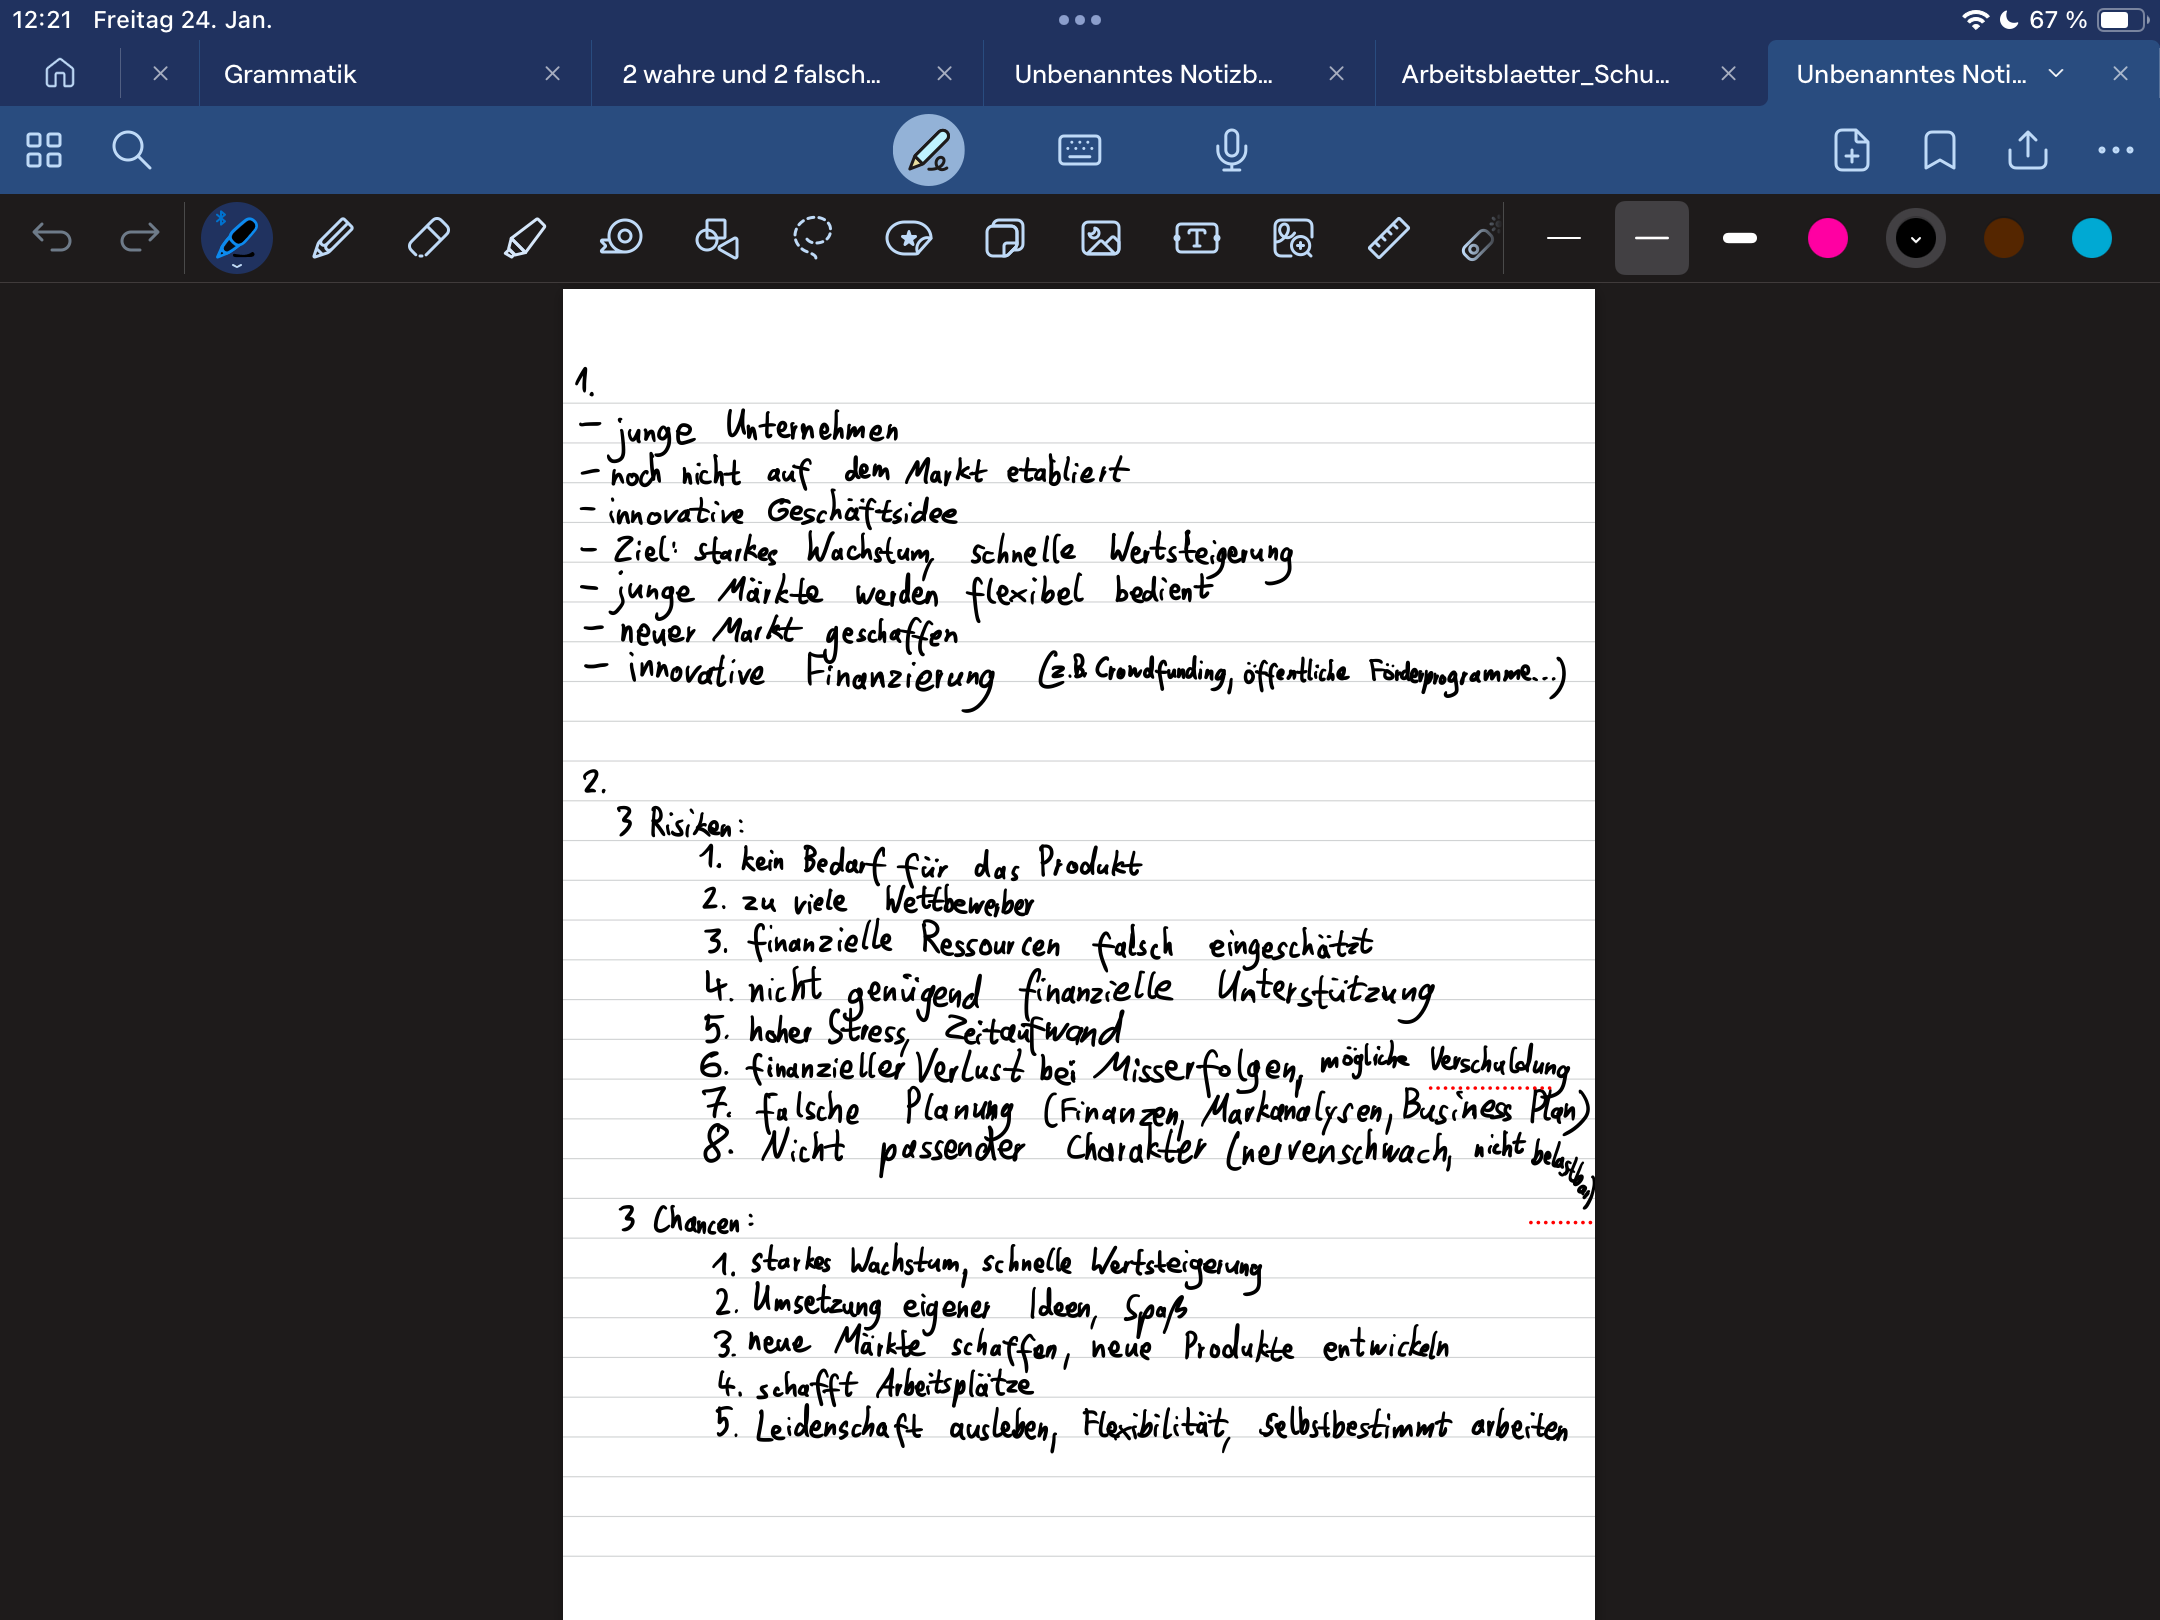 12:21 Freitag 24. Jan. 67 %
Grammatik 2 wahre und 2 falsch... Unbenanntes Notizb... Arbeitsblaetter_Schu... Unbenanntes Noti...
1.
– junge Unternehmen
– noch nicht auf dem Markt etabliert
– innovative Geschäftsidee
– Ziel: starkes Wachstum, schnelle Wertsteigerung
– junge Märkte werden flexibel bedient
– neuer Markt geschaffen
– innovative Finanzierung (z.B. Crowdfunding, öffentliche Förderprogramme...)
2.
3 Risiken:
1. kein Bedarf für das Produkt
2. zu viele Wettbewerber
3. finanzielle Ressourcen falsch eingeschätzt
4. nicht genügend finanzielle Unterstützung
5. hoher Stress, Zeitaufwand
6. finanzieller Verlust bei Misserfolgen, mögliche Verschuldung
7. falsche Planung (Finanzen, Markanalysen, Business Plan)
8. Nicht passender Charakter (nervenschwach, nicht belastbar)
3 Chancen:
1. starkes Wachstum, schnelle Wertsteigerung
2. Umsetzung eigener Ideen, Spaß
3. neue Märkte schaffen, neue Produkte entwickeln
4. schafft Arbeitsplätze
5. Leidenschaft ausleben, Flexibilität, selbstbestimmt arbeiten